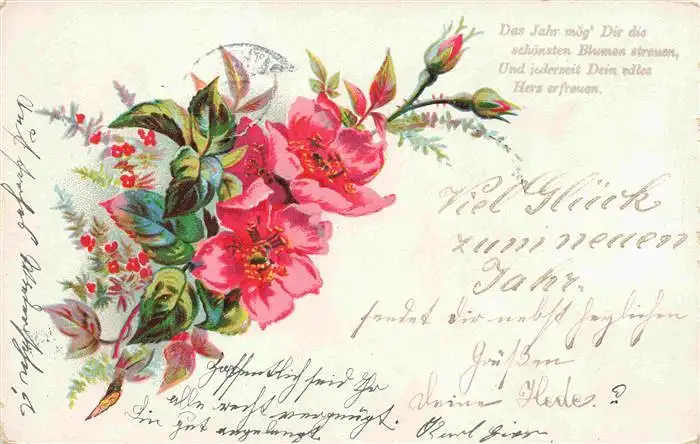 Das Jahr mög' Dir die
schönsten Blumen streuen,
Und jederzeit Dein edles
Herz erfreuen.
Viel Glück
zum neuen
Jahr.
sendet dir nebst herzlichen
Grüßen
deine Hede.
Hoffentlich seid Ihr
alle recht vergnügt.
Bin gut angelangt.
Karl